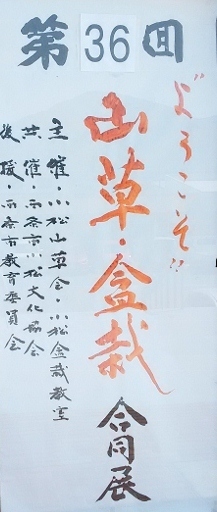 第36回
ようこそ!!
山草・盆栽 合同展
主催・小松山草会・小松盆栽教室
共催・西条市小松文化協会
後援・西条市教育委員会